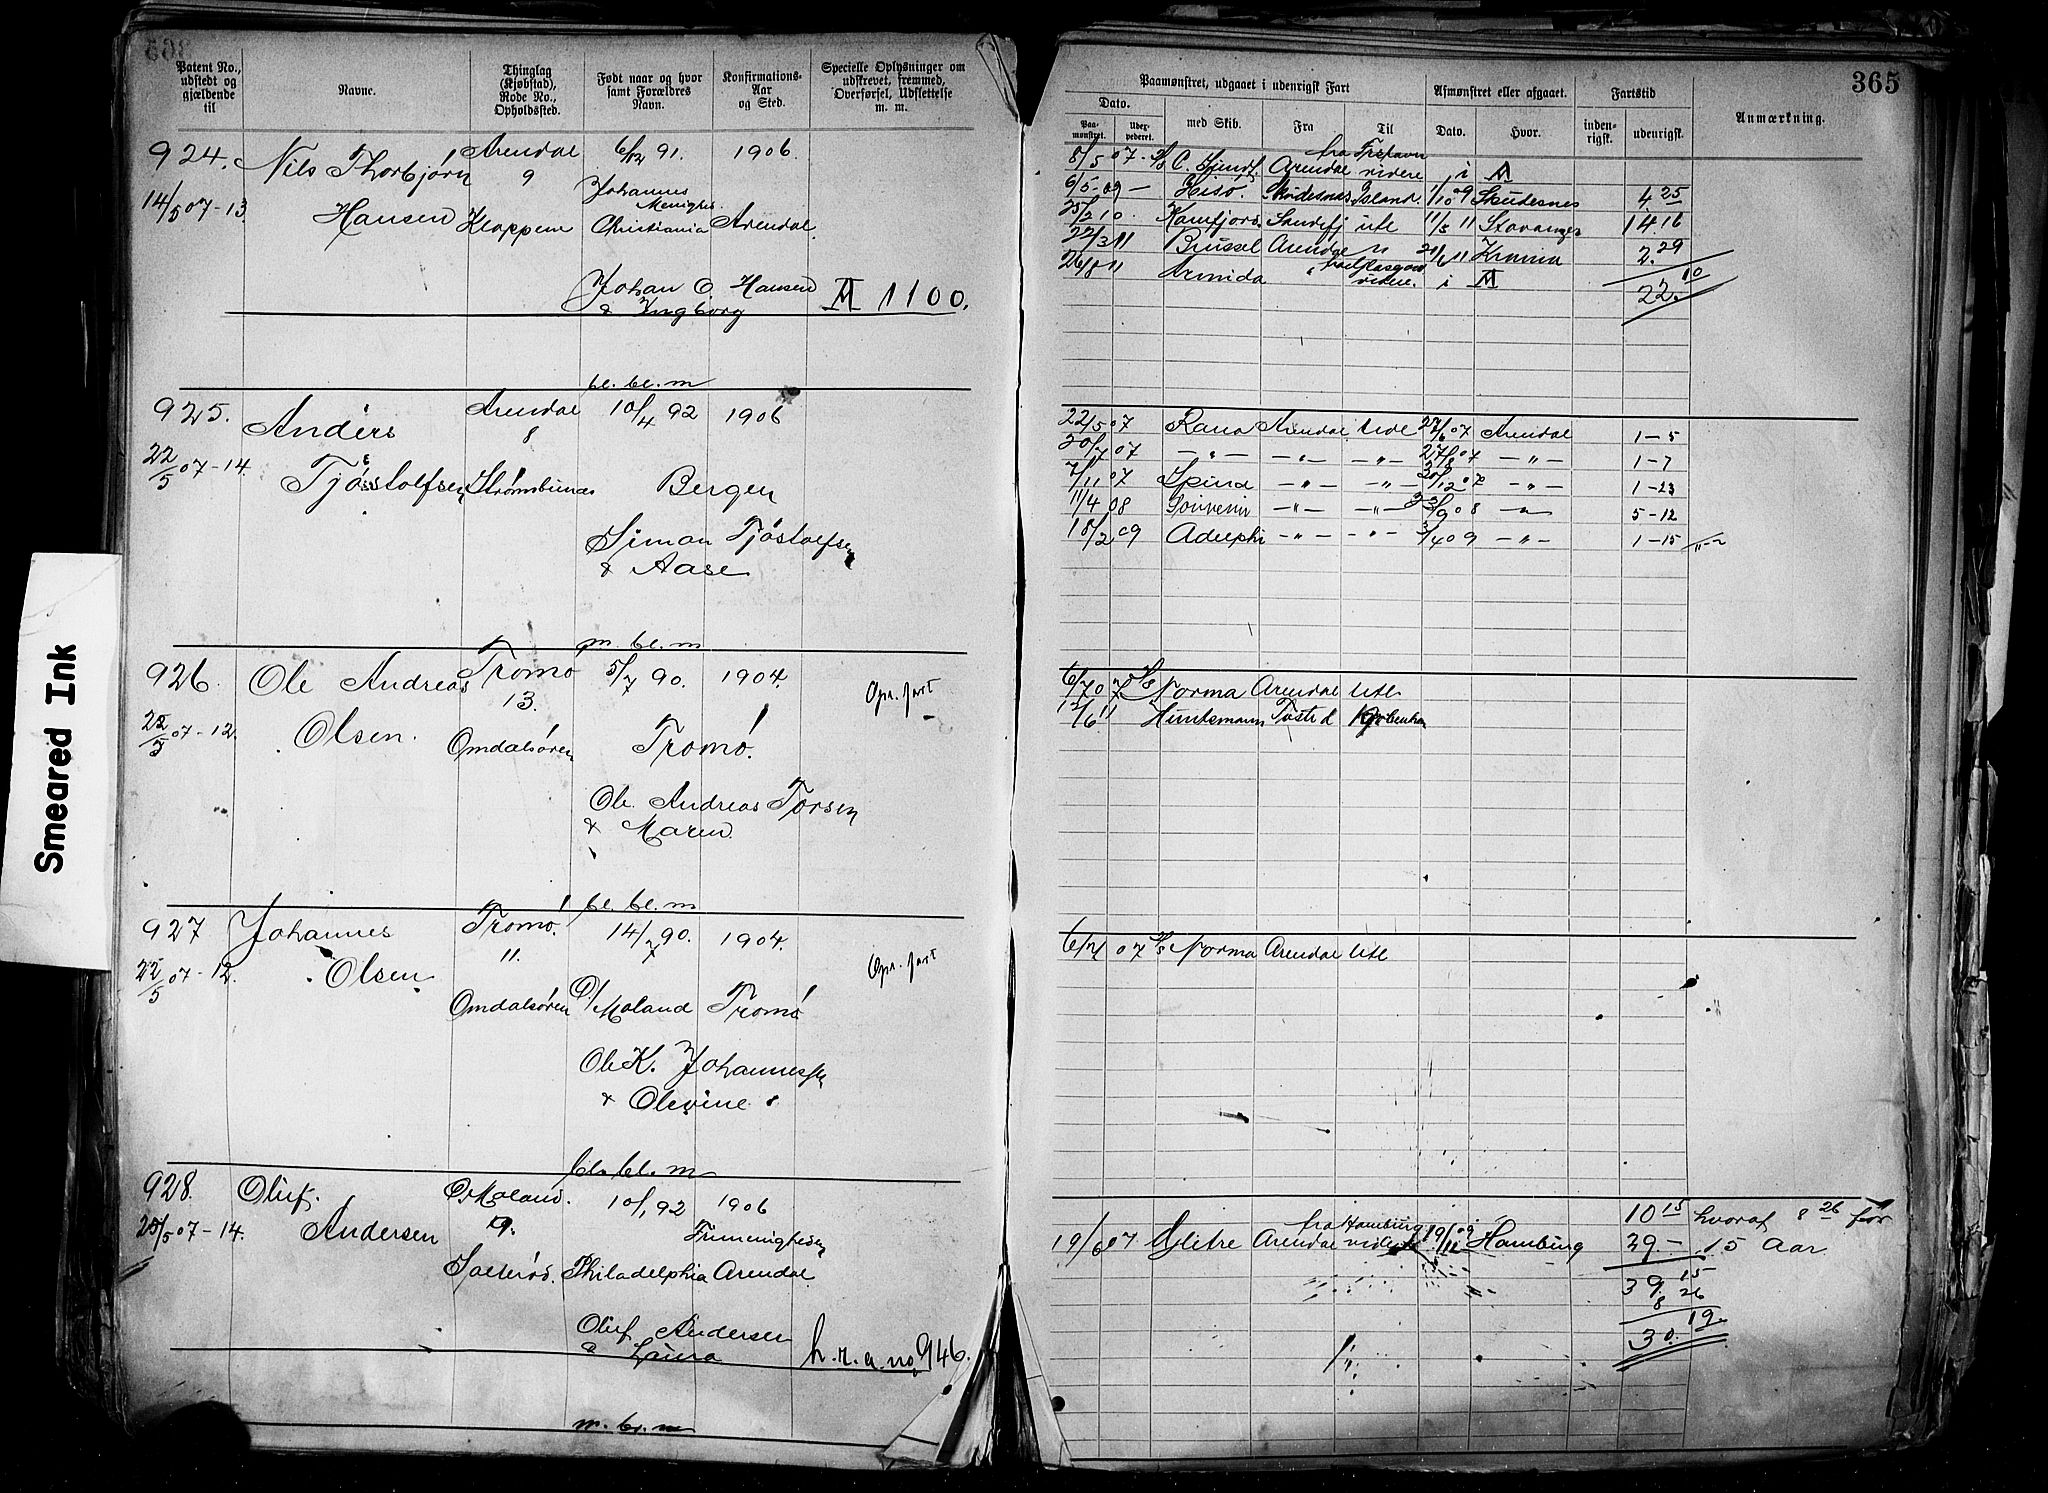 365
Patent No., udstedt og gjældende til
Navne.
Thinglag (Kjøbstad), Rode No., Opholdssted.
Født naar og hvor samt Forældres Navn.
Konfirmations-Aar og Sted.
Specielle Oplysninger om udskrevet, fremmed, Overførsel, Udslettelse m. m.
Paamønstret, udgaaet i udenrigsk Fart
Afmønstret eller afgaaet.
Fartstid
Anmærkning.
Dato.
Paamønstret.
Udexpederet.
med Skib.
Fra
Til
Dato.
Hvor.
indenrigsk.
udenrigsk.
924. Nils Thorbjørn Arendal 6/12 91. 1906.
9 Johannes Menighed
14/5 07-13. Hansen Kloppene Christiania Arendal.
Johan C Hansen
& Ingborg 1100.
bl. bl. m
8/5 07. S/s Arendal fra videre i
6/5 09 — Hisø Skudesnes Island. 1/10 09 Skudesnes 4.25
25/2 10. Sandefj ute 11/3 11 Stavanger 14.16
22/3 11 Brussel Arendal 2.29
26/8 11 Armida fra Glasgow videre. i 10
22.
925. Anders Arendal 10/4 92 1906
8
22/5 07-14. Tjøstolfsen Strømsbunes Bergen
Simon Tjøstolfsen
& Aase
m. bl. m
22/5 07 Rana Arendal ude 27/6 07 Arendal 1-5
20/7 07 —"— —"— —"— 27/8 07 —"— 1-7
7/11 07 Spind —"— —"— 30/12 07 —"— 1-23
11/4 08 Souvenir —"— —"— 23/9 08 —"— 5-12
18/2 09 Adelphi —"— —"— 3/4 09 —"— 1-15
926. Ole Andreas Tromø 5/7 90. 1904.
13. Opr. fart
22/5 07-12. Olsen. Omdalsøren Tromø.
Ole Andreas Torsen
& Maren.
bl. bl. m
6/7 07 S/s Norma Arendal ute
12/6 11 Huntsmann Kjøbenhavn
927 Johannes Tromø. 14/7 90. 1904.
11. Opr. fart
22/5 07-12. Olsen Omdalsøren Ø/Moland Tromø
Ole K. Johannessen
& Olevine
bl. bl. m
6/7 07 S/s Norma Arendal ute
928. Oluf Ø Moland. 10/1 92 1906
9.
25/5 07-14. Andersen Frimenigheden
Salterød. Philadelphia Arendal
Oluf Andersen
& Laura h.r.a. no 946.
m. bl. m
10 15 hvoraf 8 26 før
19/6 07 Glitre Arendal fra Hamburg videre 19/12 09 Hamburg 29.- 15 Aar
39. 15
8 26
30. 19
Smeared Ink